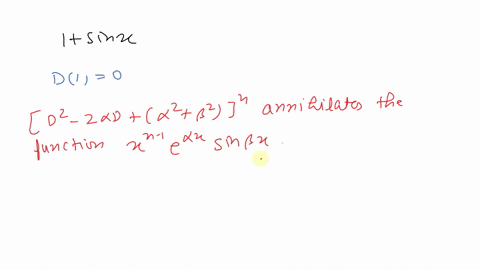 1 + sinx
D(1) = 0
[D² - 2αD + (α² + β²)]ⁿ annihilates the
function xⁿ⁻¹ e^αx sinβx .